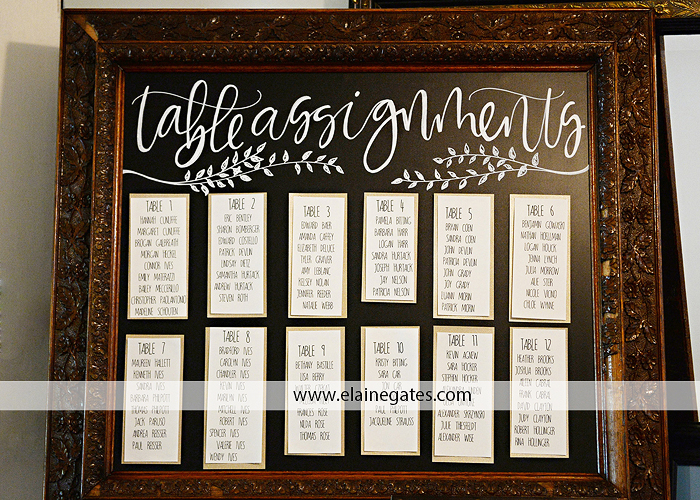 table assignments
TABLE 1
HANNAH CUNLIFFE
MARGARET CUNLIFFE
BROGAN GALBREATH
MORGAN HECKEL
CONNOR IVES
EMILY MATERAZZI
BAILEY MECCARIELLO
CHRISTOPHER PAOLANTONIO
MADELINE SCHOUTEN
TABLE 2
ERIC BENTLEY
SHARON BOMBERGER
EDWARD COSTELLO
PATRICK DEVEN
LINDSAY DIETZ
SAMANTHA HURTACK
ANDREW HURTACK
STEVEN ROTH
TABLE 3
EDWARD BAER
AMANDA CAFFEY
ELIZABETH DELUCE
TYLER GRAVER
AMY LEBLANC
KELSEY NOLAN
JENNIFER REEDER
NATALIE WEBB
TABLE 4
PAMELA BITTING
BARBARA HARR
LOGAN HARR
SANDRA HURTACK
JOSEPH HURTACK
JAY NELSON
PATRICIA NELSON
TABLE 5
BRYAN COEN
SANDRA COEN
JOHN DEVON
PATRICIA DEVON
JOHN GRADY
JOY GRADY
LUANN MORIN
PATRICK MORIN
TABLE 6
BENJAMIN GOWASKI
NATHAN HOELLMAN
LOGAN HOLICK
JENNA LYNCH
JULIA MORROW
ALIE STEIR
NICOLE VIOND
CHLOE WYNNE
TABLE 7
MAUREEN HALLETT
KENNETH IVES
SANDRA IVES
BARBARA PULPOTT
THOMAS
JACK PARUSO
ANDREA ROSSER
PAUL ROSSER
TABLE 8
BRADFORD IVES
CAROLYN IVES
CHANDLER IVES
KEVIN IVES
MARILYN IVES
MITCHELL IVES
ROBERT IVES
SPENCER IVES
VALERIE IVES
WENDY IVES
TABLE 9
BETHANY BASTILLE
LISA BERRY
FRANCES ROSE
NILDA ROSE
THOMAS ROSE
TABLE 10
KRISTY BITTING
SARA CAR
JOE CAR
JACQUELINE STRAUSS
TABLE 11
KEVIN AGNEW
SARA HOCKER
STEPHEN HOCKER
ALEXANDER SKRZYNSKI
JULIE THIESFELDT
ALEXANDER WISE
TABLE 12
HEATHER BROOKS
JOSHUA BROOKS
AILEEN CABRAL
FRANK CABRAL
DAVID CLAYTON
JUDY CLAYTON
ROBERT HOLLINGER
RINA HOLLINGER
www.elainegates.com